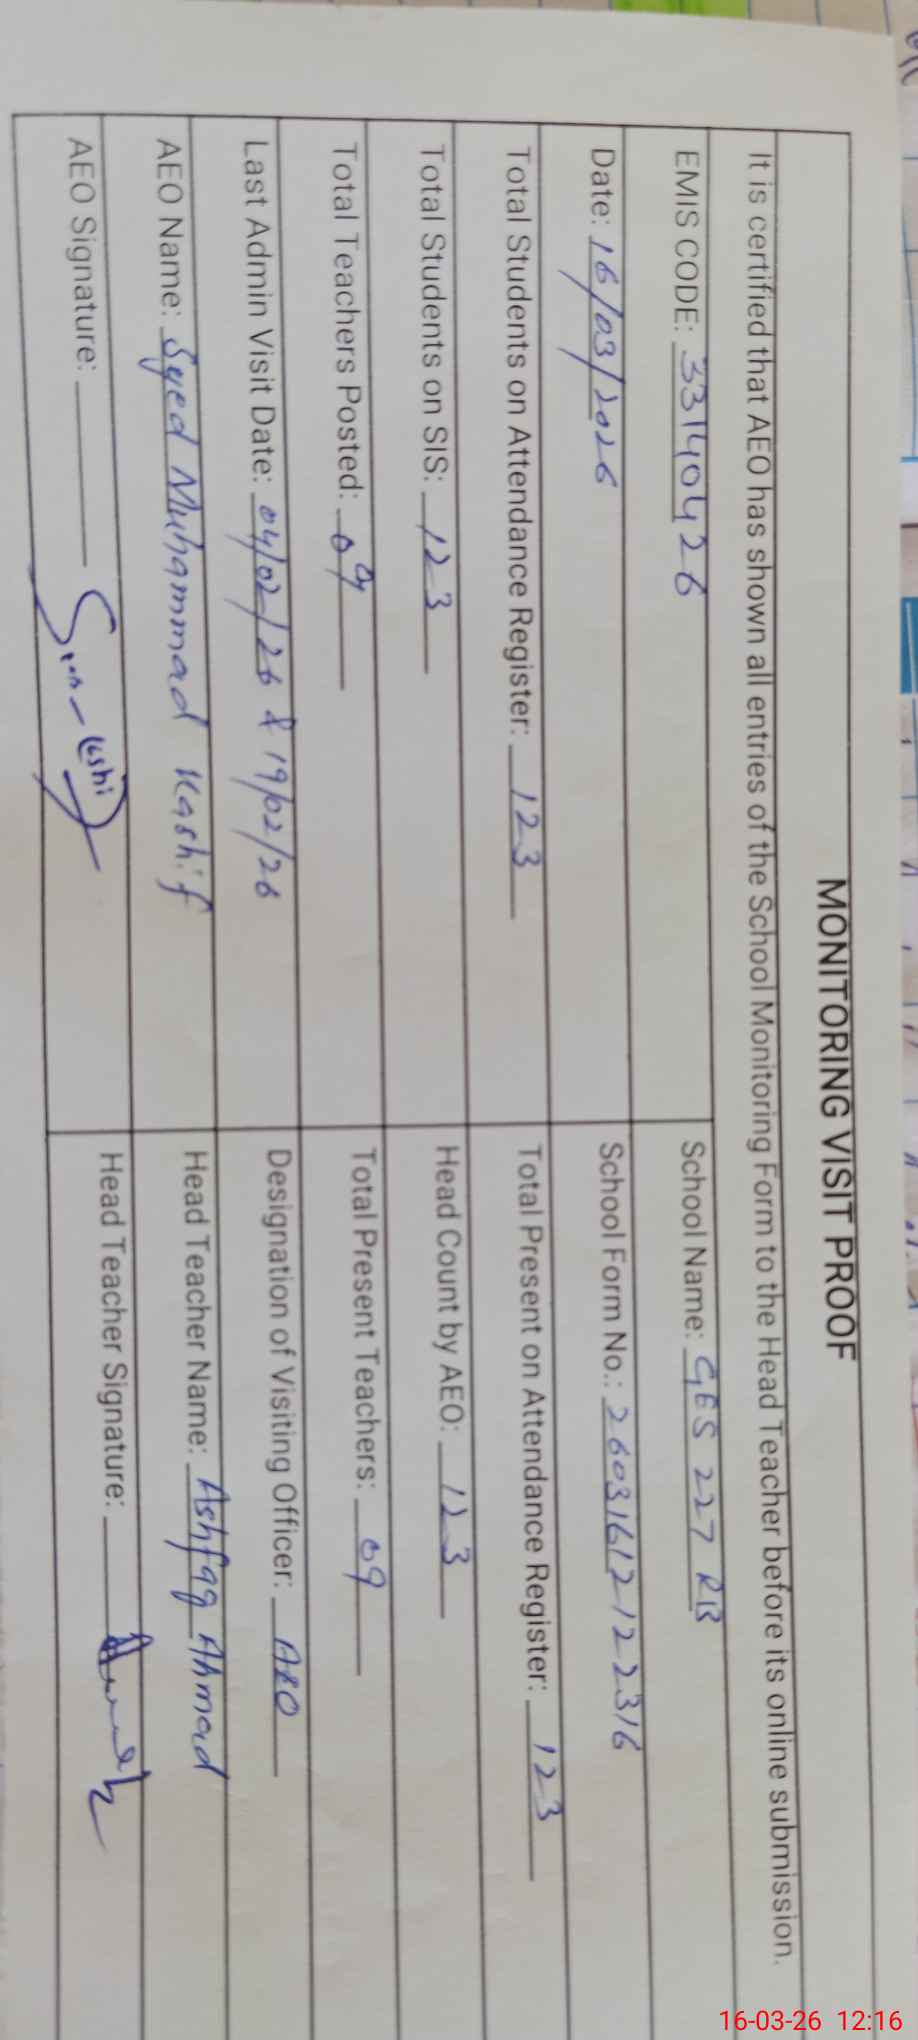 MONITORING VISIT PROOF
It is certified that AEO has shown all entries of the School Monitoring Form to the Head Teacher before its online submission.
EMIS CODE: 33140426 School Name: GES 227 RB
Date: 16/03/2026 School Form No.: 26031612122316
Total Students on Attendance Register: 123 Total Present on Attendance Register: 123
Total Students on SIS: 123 Head Count by AEO: 123
Total Teachers Posted: 09 Total Present Teachers: 09
Last Admin Visit Date: 04/02/26 & 19/02/26 Designation of Visiting Officer: AEO
AEO Name: Syed Muhammad Kashif Head Teacher Name: Ashfaq Ahmad
AEO Signature: Head Teacher Signature:
16-03-26 12:16